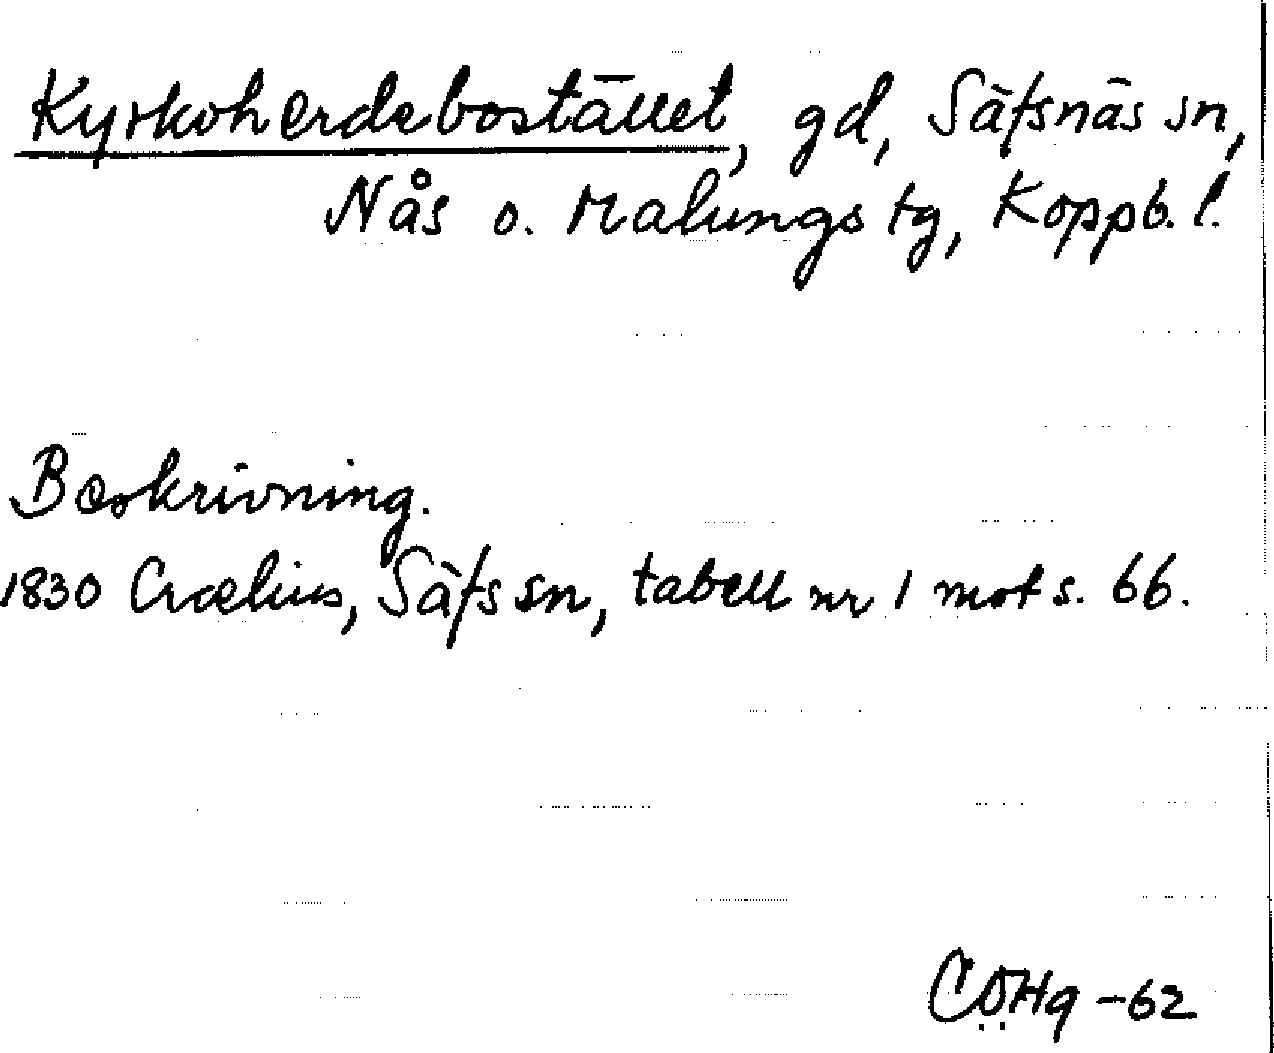 Kyrkoherdebostället, gd, Säfsnäs sn,
Nås o. Malungs tg, Koppb. l.
Beskrivning.
1830 Crælius, Säfs sn, tabell nr 1 mot s. 66.
-62